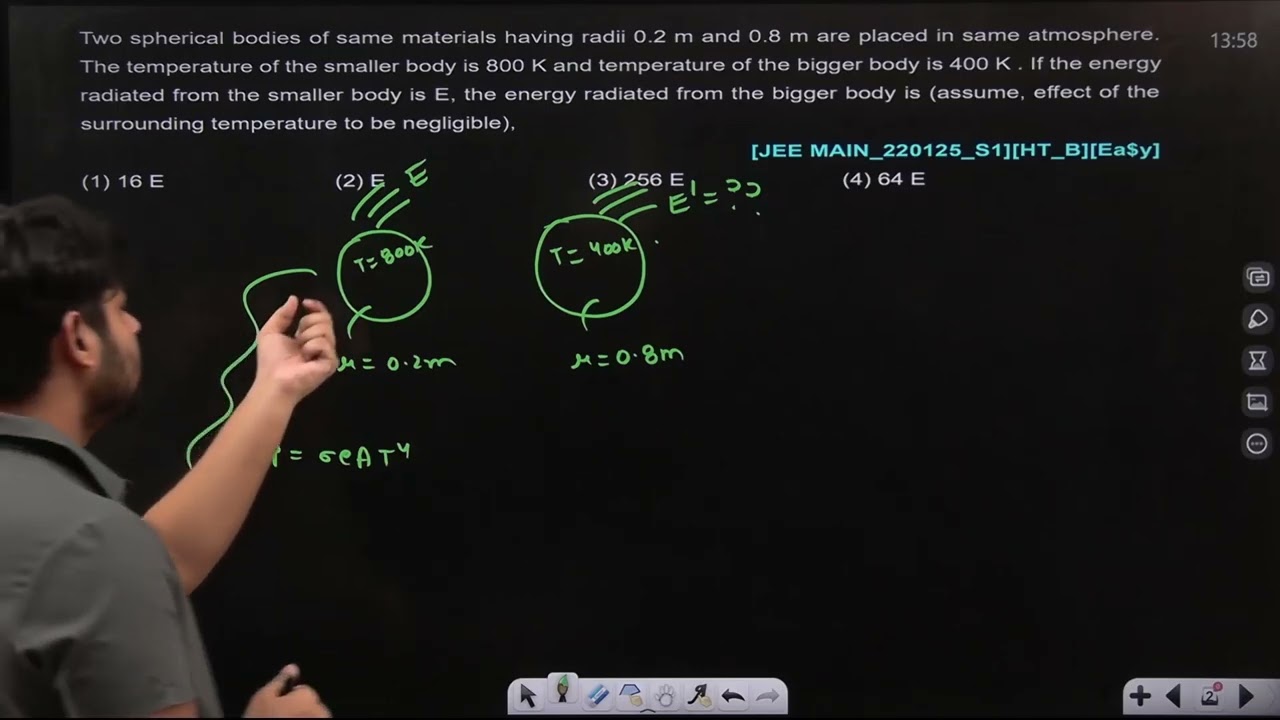 Two spherical bodies of same materials having radii 0.2 m and 0.8 m are placed in same atmosphere.
13:58
The temperature of the smaller body is 800 K and temperature of the bigger body is 400 K . If the energy
radiated from the smaller body is E, the energy radiated from the bigger body is (assume, effect of the
surrounding temperature to be negligible),
[JEE MAIN_220125_S1][HT_B][Ea$y]
(1) 16 E (2) E (3) 256 E (4) 64 E
E
E' = ??
T = 800K
T = 400K
r = 0.2m
r = 0.8m
= σeAT⁴
2